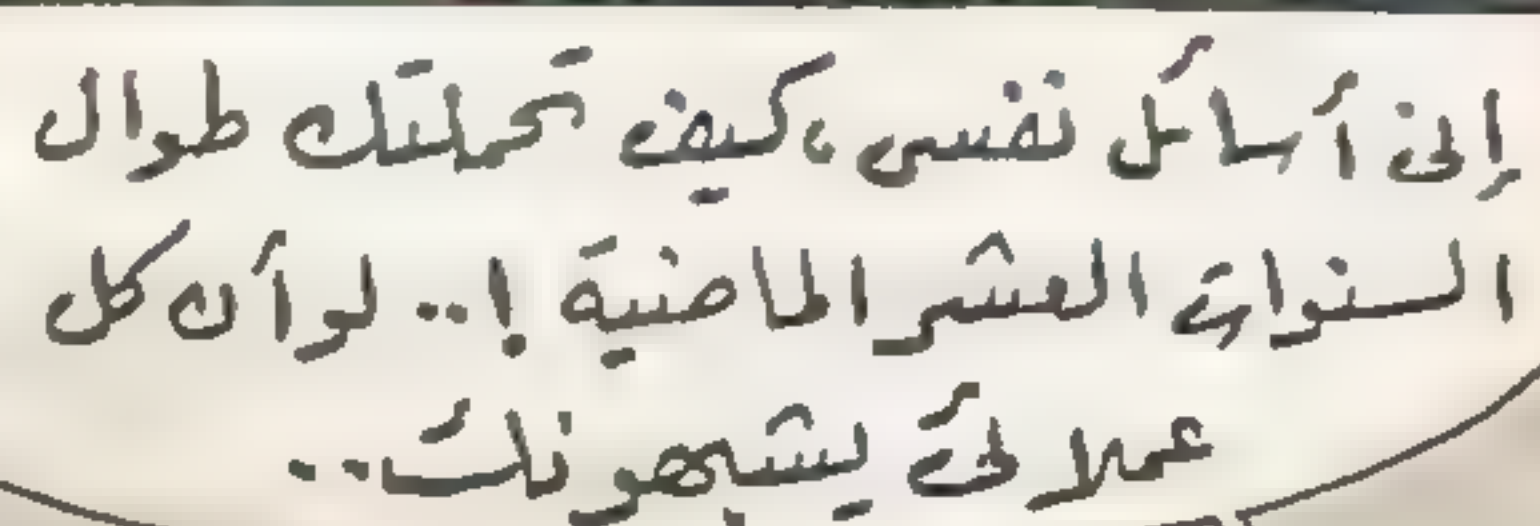 إنى أسائل نفسى، كيف تحملتك طوال
السنوات العشر الماضية !.. لو أن كل
عملائى يشبهونك..